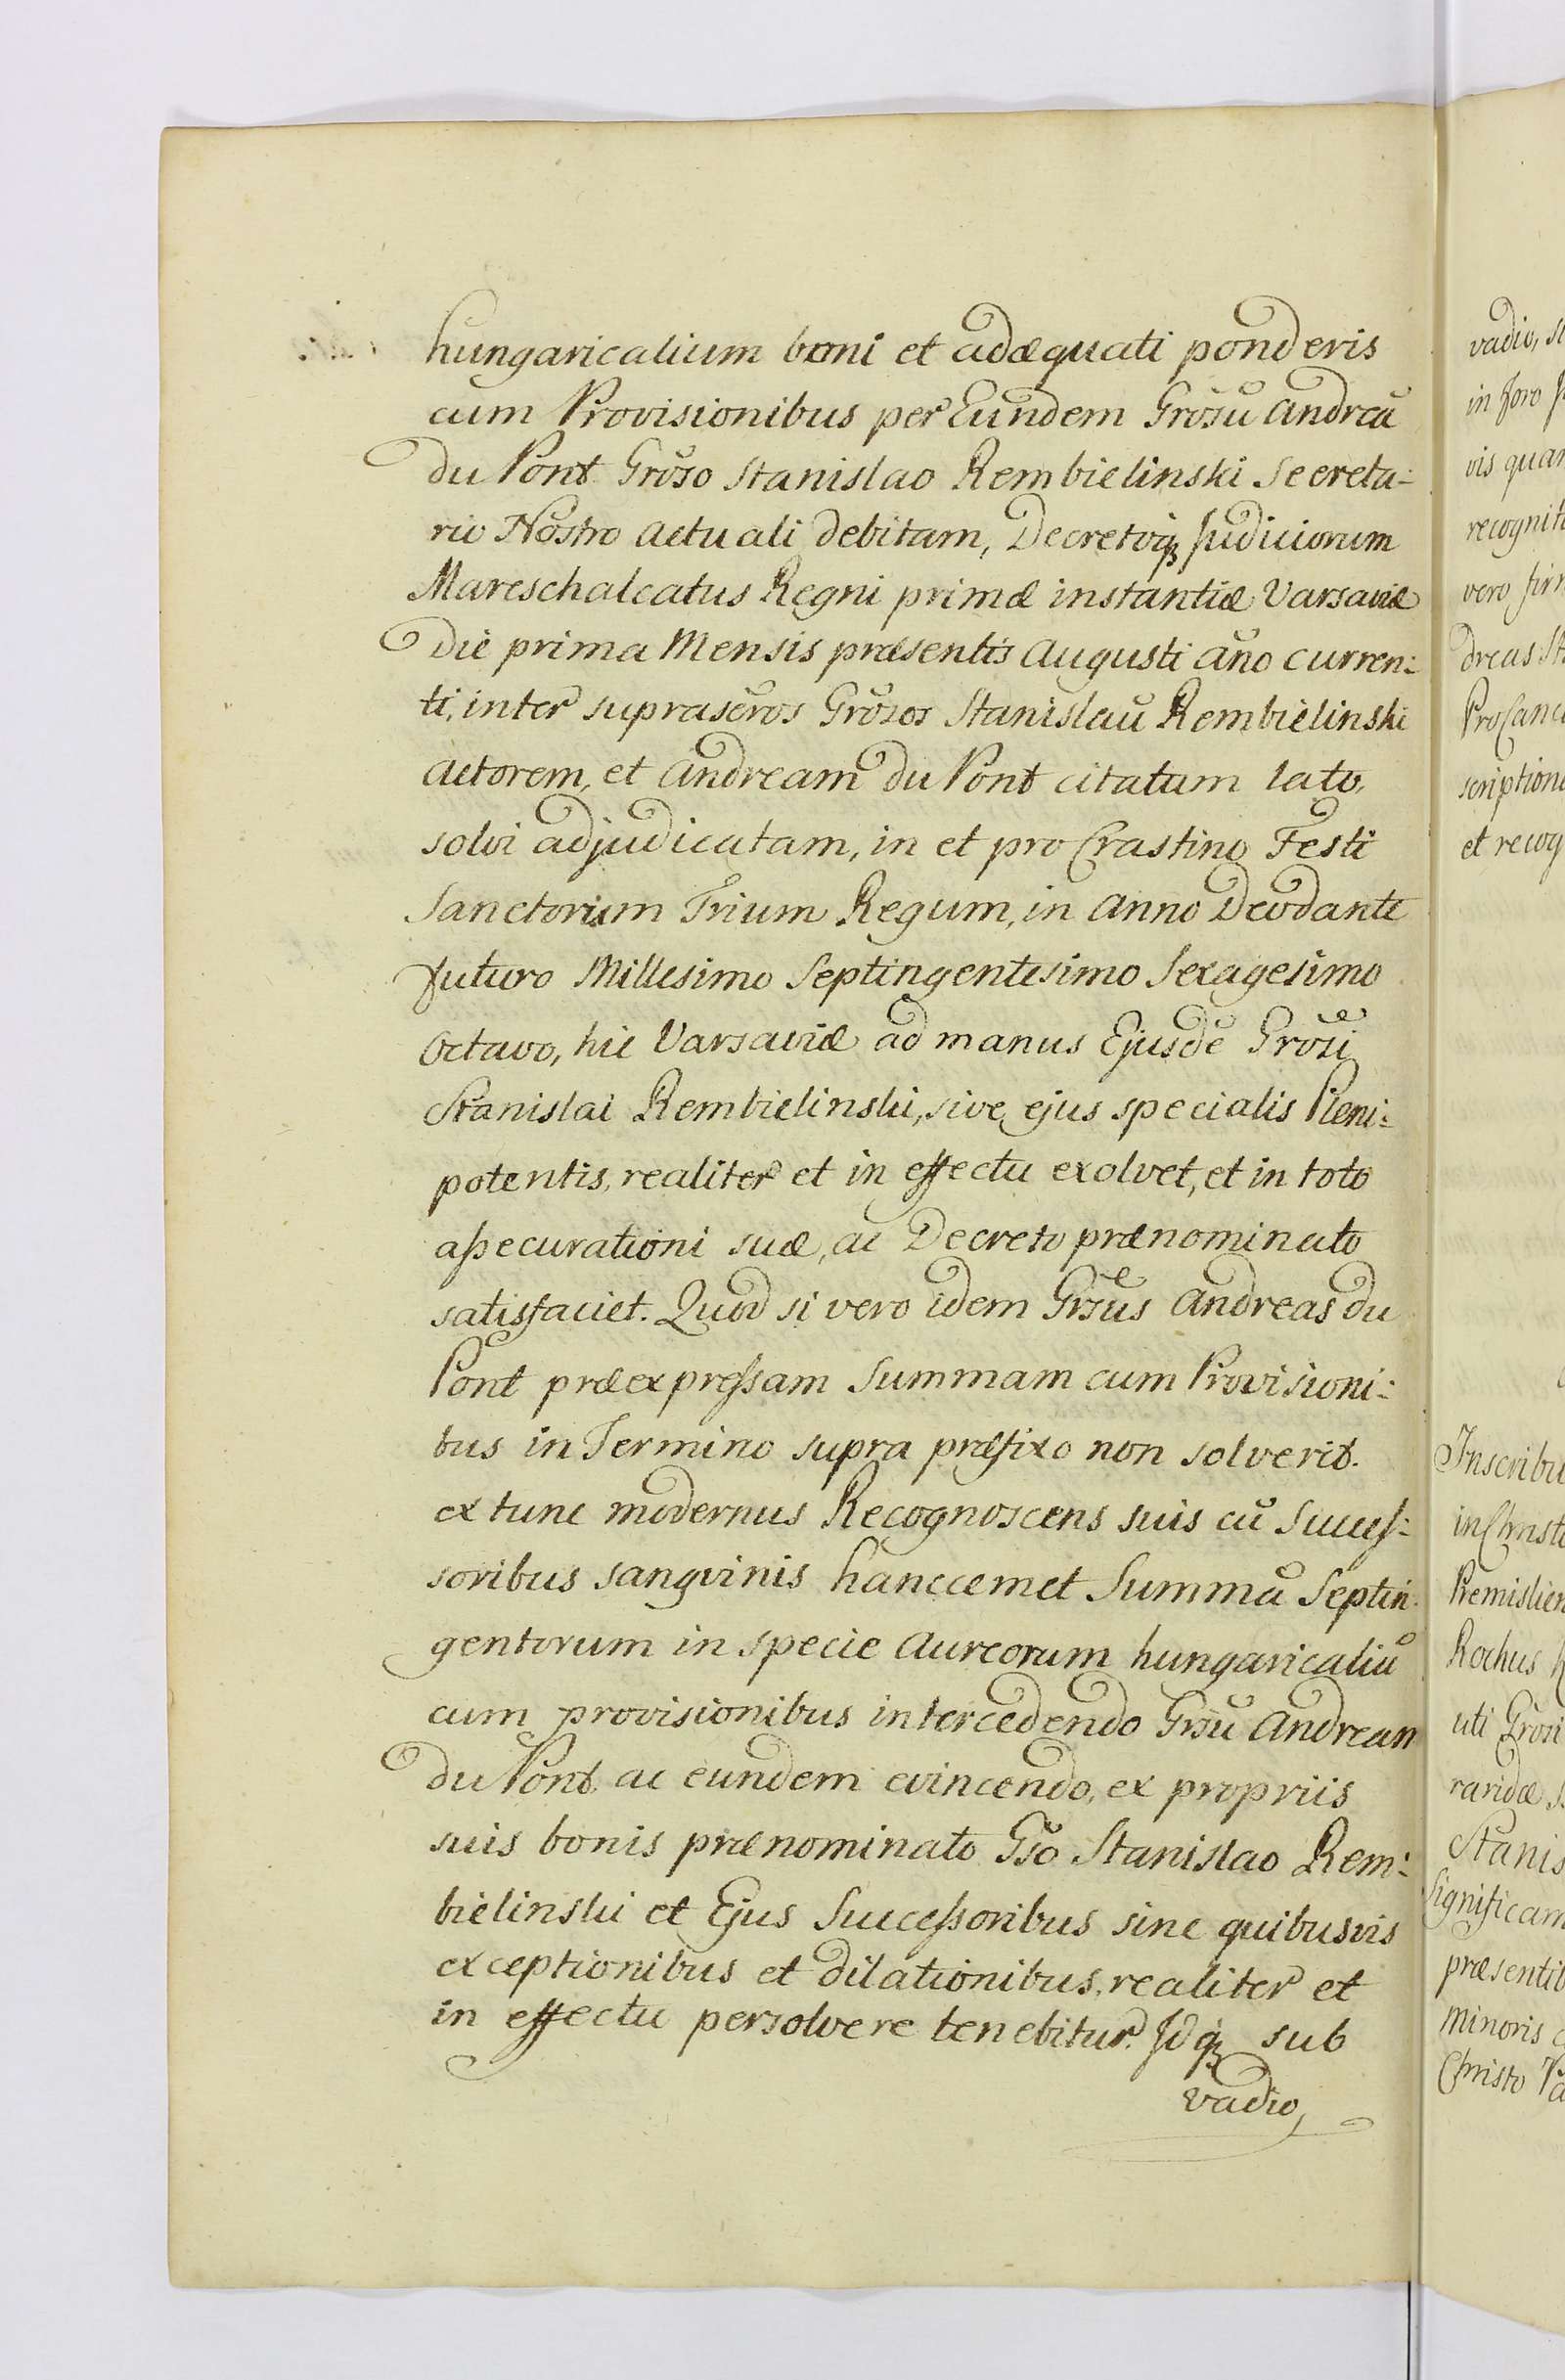 hungaricalium boni et adæquati ponderis
cum Provisionibus per Eundem Grõsũ Andreã
du Pont Grõso Stanislao Rembielinski Secreta-
rio Nostro actuali debitam, Decretoq; Judiciorum
Mareschalcatus Regni primæ instantiæ Varsaviæ
die prima Mensis præsentis Augusti año curren-
ti, inter suprascr̃os Grõsos Stanislaũ Rembielinski
actorem, et Andream du Pont citatum lato,
solvi adjudicatam, in et pro Crastino Festi
Sanctorum Trium Regum, in Anno Deodante
futuro Millesimo Septingentesimo Sexagesimo
Octavo, hic Varsaviæ ad manus Ejusdẽ Grõsi
Stanislai Rembielinski, sive ejus specialis Pleni-
potentis, realiter et in effectu exolvet, et in toto
assecurationi suæ, ac Decreto prænominato
satisfaciet. Quod si vero idem Grs̃us Andreas du
Pont præexpressam Summam cum Provisioni-
bus in Termino supra præfixo non solverit.
ex tunc modernus Recognoscens suis cũ Succes-
soribus sangvinis hanccemet Summã Septin-
gentorum in specie Aureorum hungaricaliũ
cum provisionibus intercedendo Grs̃ũ Andream
du Pont ac eundem evincendo, ex propriis
suis bonis prænominato Gs̃o Stanislao Rem-
bielinski et Ejus Successoribus sine quibusvis
exceptionibus et dilationibus, realiter et
in effectu persolvere tenebitur. Idq; sub
vadio,
vadio, s
in foro
vis quar
recogniti
vero firm
dreas St
ProCanc
scriptione
et recog
Inscribu
in Christ
Premislien
Rochus
uti Grõsi
randæ
Stanis
Significam
præsentib
Minoris
Christo Pa